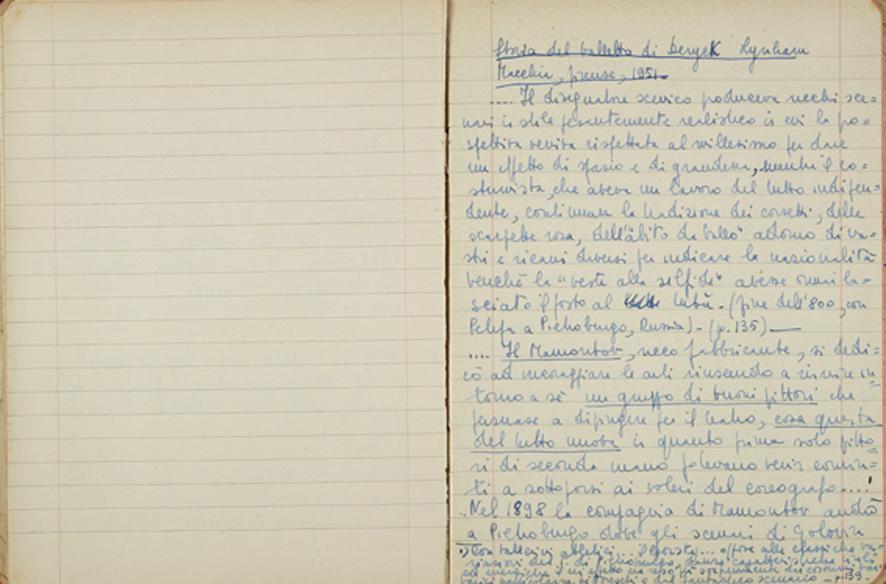 Storia del balletto di Deryck Lynham
Macchia, firenze, 1951.
.... Il disegnatore scenico produceva vecchi sce=
nari in stile pesantemente realistico in cui la pro=
spettiva veniva rispettata al millesimo per dare
un effetto di spazio e di grandezza, mentre il co=
stumista, che aveva un lavoro del tutto indipen=
dente, continuava la tradizione dei corsetti, delle
scarpette rosa, dell'"abito da ballo" adorno di na=
stri e ricami diversi per indicare la nazionalità
benchè la "veste alla silfide" avesse ormai la=
sciato il posto al tutù. (fine dell'800, con
Petipa a Pietroburgo, Russia) - (p. 135)
.... Il Mamontov, ricco fabbricante, si dedi=
cò ad incoraggiare le arti riuscendo a riunire in=
torno a sè un gruppo di buoni pittori che
persuase a dipingere per il teatro, cosa questa
del tutto nuova in quanto prima solo pitto=
ri di seconda mano potevano venir convin=
ti a sottoporsi ai voleri del coreografo....
Nel 1898 la compagnia di Mamontov andò
a Pietroburgo dove gli scenari di Golovin
Con ballerini atletici... offre alle
di Pietroburgo, danze caratteristiche
costumi
p. 139.